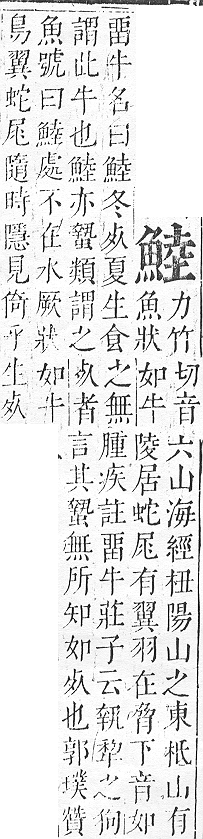 鯥
力竹切音六山海經杻陽山之東柢山有
魚狀如牛陵居蛇尾有翼羽在脅下音如
畱牛名曰鯥冬𣦸夏生食之無腫疾註畱牛莊子云執犂之狗
謂此牛也鯥亦蟄類謂之𣦸者言其蟄無所知如𣦸也郭璞贊
魚號曰鯥處不在水厥狀如牛
鳥翼蛇尾隨時隱見倚乎生𣦸